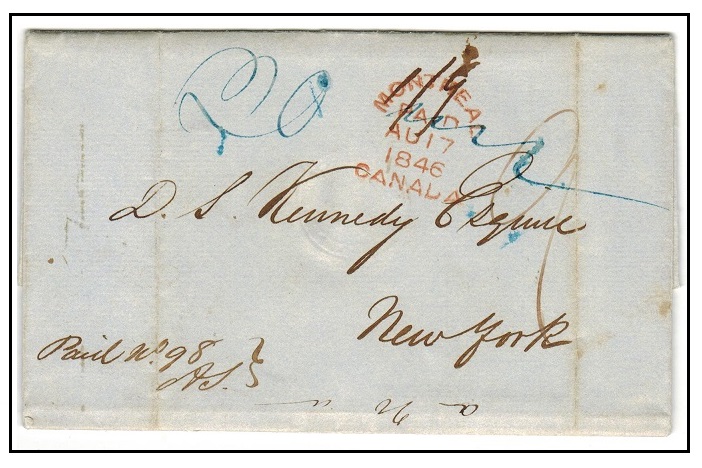 20
1/9
MONTREAL
PAID
AU 17
1846
CANADA
D. S. Kennedy Esquire
New York
Paid No. 98
A.S.